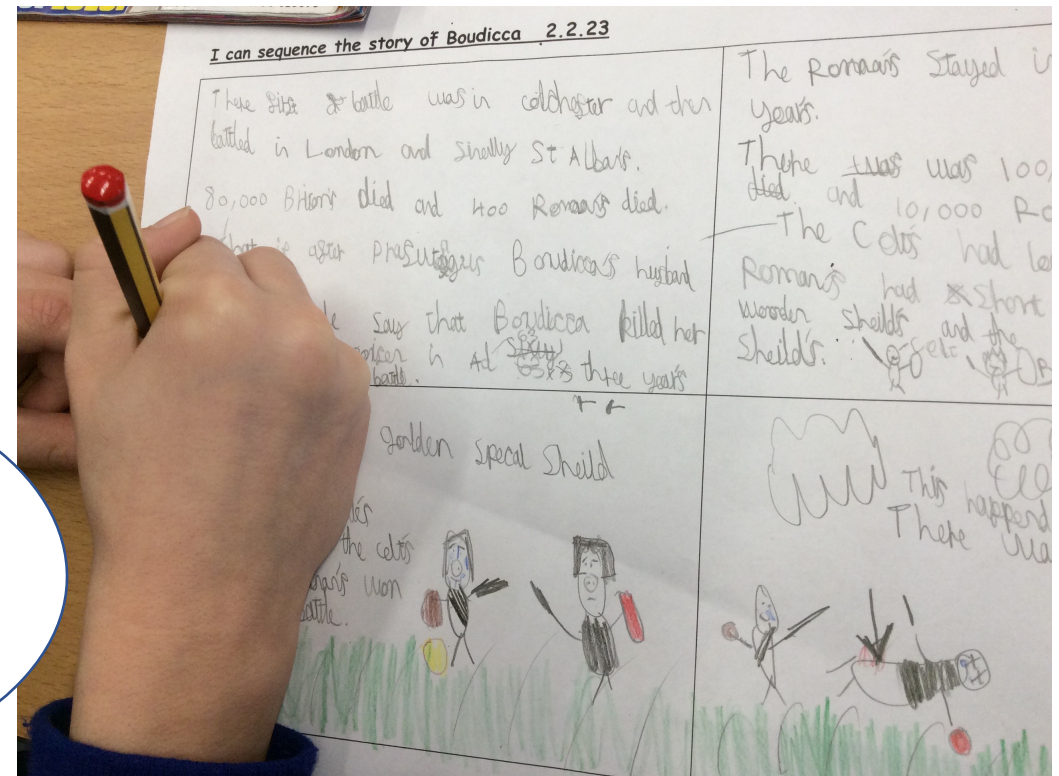 I can sequence the story of Boudicca 2.2.23
There first battle was in colchester and then
battled in London and St Alban's.
80,000 died and 400 Roman's died.
after Boudicca's husband
say that Boudicca killed her
in Ad three years
battle.
The Roman's Stayed
years.
There was 100,
died. and 10,000 Ro
The Celts had
Roman's had short
wooden Sheild's and the
Sheild's. celt
golden specal Sheild
the celts
won
battle.
This happend
There wa